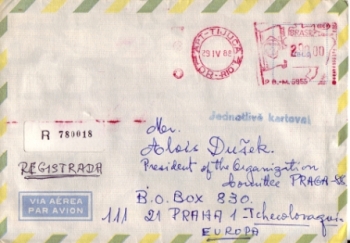 APT-TIJUCA
29 IV 88
BRASIL
Jednotlivě kartoval
R 780018
REGISTRADA
Mr.
Alois Dušek.
President of the Organization
Committee PRAGA-88
B.O.BOX 830.
111 21 PRAHA 1 Tchecoslovaquia
EUROPA
VIA AÉREA
PAR AVION